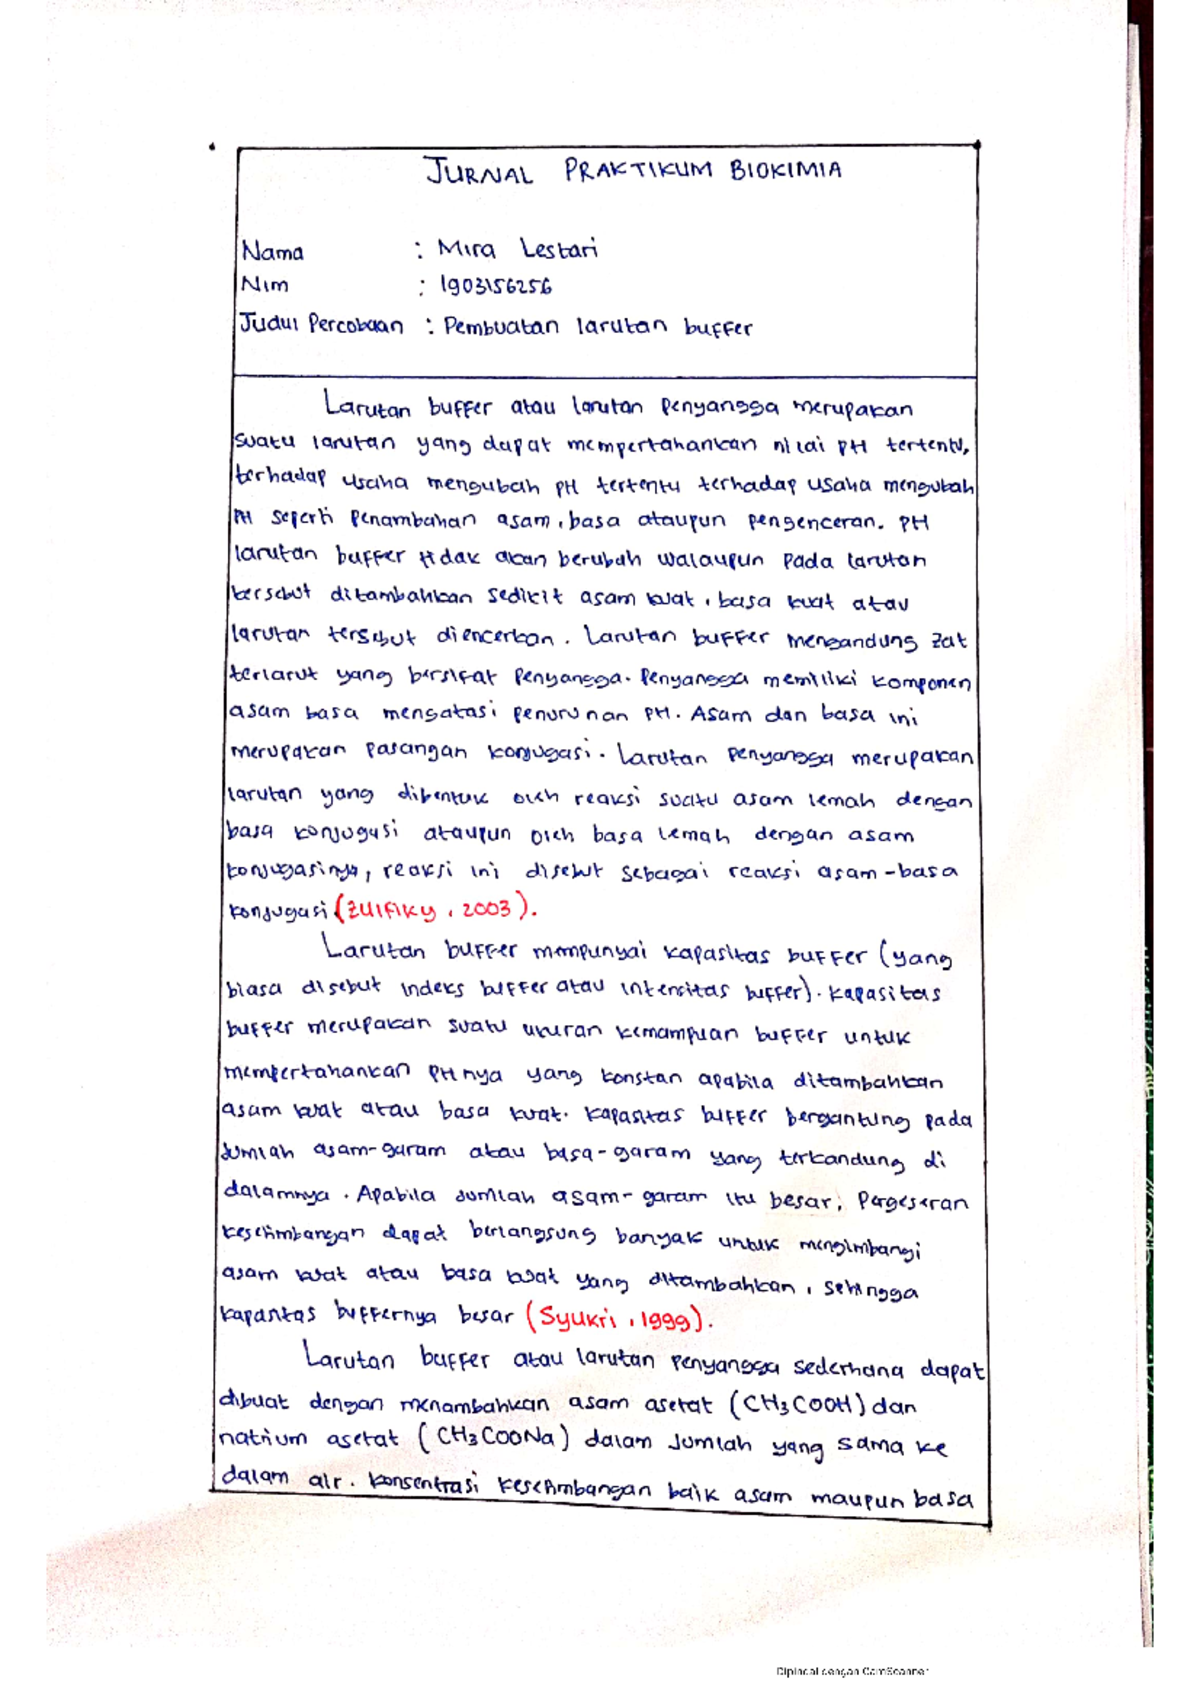 JURNAL PRAKTIKUM BIOKIMIA
Nama : Mira Lestari
Nim : 1903156256
Judul Percobaan : Pembuatan larutan buffer
Larutan buffer atau larutan penyangga merupakan
suatu larutan yang dapat mempertahankan nilai pH tertentu,
terhadap usaha mengubah pH tertentu terhadap usaha mengubah
pH seperti penambahan asam, basa ataupun pengenceran. pH
larutan buffer tidak akan berubah walaupun pada larutan
tersebut ditambahkan sedikit asam kuat, basa kuat atau
larutan tersebut diencerkan. Larutan buffer mengandung zat
terlarut yang bersifat penyangga. Penyangga memiliki komponen
asam basa mengatasi penurunan pH. Asam dan basa ini
merupakan pasangan konjugasi. Larutan penyangga merupakan
larutan yang dibentuk oleh reaksi suatu asam lemah dengan
basa konjugasi ataupun oleh basa lemah dengan asam
konjugasinya, reaksi ini disebut sebagai reaksi asam-basa
konjugasi (Zulfiky, 2003).
Larutan buffer mempunyai kapasitas buffer (yang
biasa disebut indeks buffer atau intensitas buffer). Kapasitas
buffer merupakan suatu ukuran kemampuan buffer untuk
mempertahankan pHnya yang konstan apabila ditambahkan
asam kuat atau basa kuat. Kapasitas buffer bergantung pada
jumlah asam-garam atau basa-garam yang terkandung di
dalamnya. Apabila jumlah asam-garam itu besar, pergeseran
kesetimbangan dapat berlangsung banyak untuk mengimbangi
asam kuat atau basa kuat yang ditambahkan, sehingga
kapasitas buffernya besar (Syukri, 1999).
Larutan buffer atau larutan penyangga sederhana dapat
dibuat dengan menambahkan asam asetat (CH3COOH) dan
natrium asetat (CH3COONa) dalam jumlah yang sama ke
dalam air. Konsentrasi kesetimbangan baik asam maupun basa
Dipindai dengan CamScanner